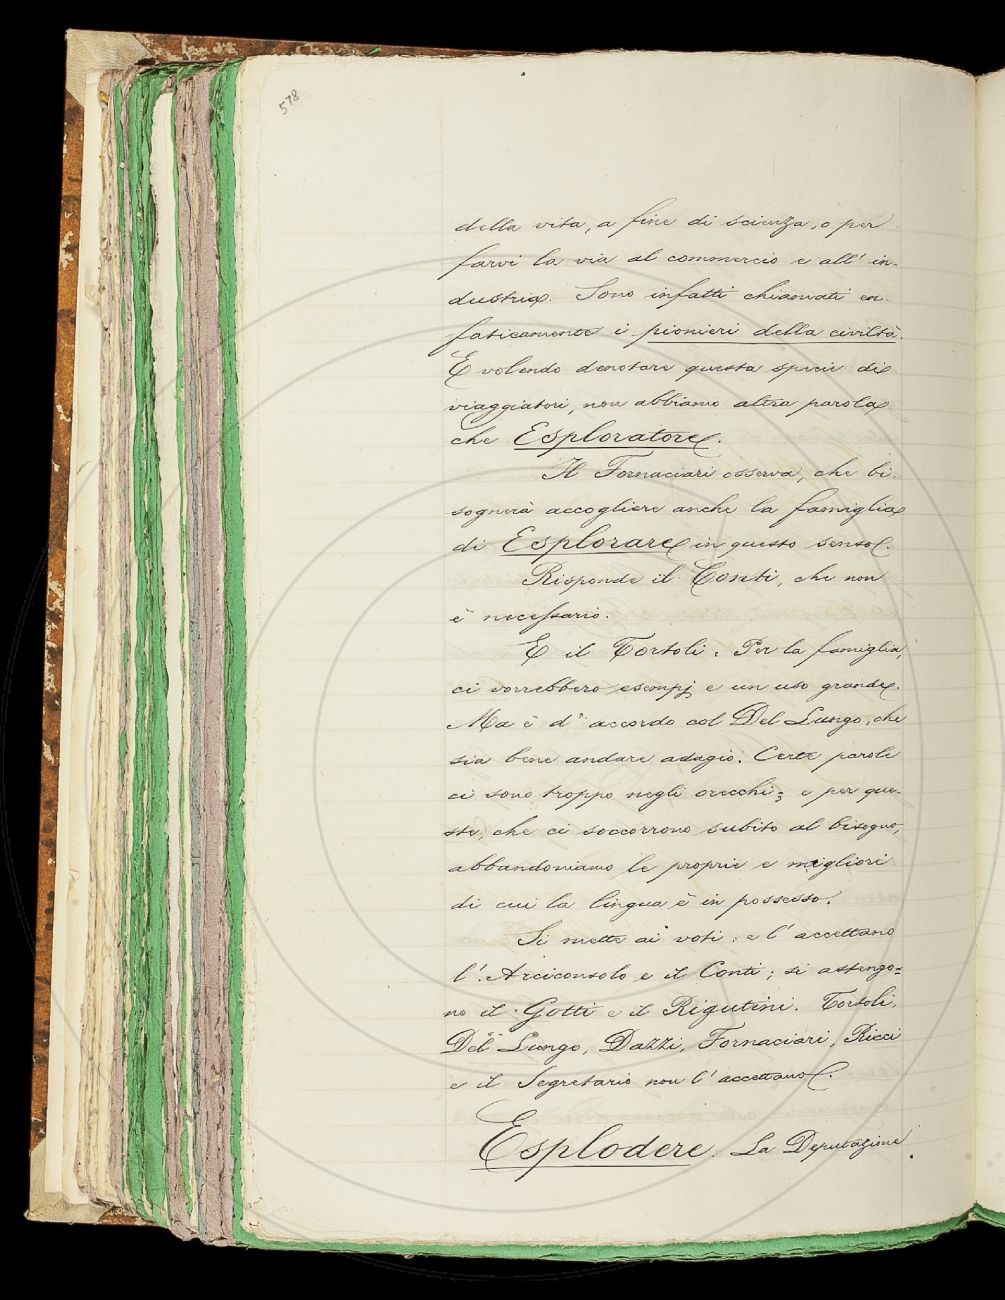 578
della vita, a fine di scienza, o per
farvi la via al commercio e all' in-
dustria. Sono infatti chiamati en-
faticamente i pionieri della civiltà.
E volendo denotare questa specie di
viaggiatori, non abbiamo altra parola
che Esploratore.
Il Fornaciari osserva, che bi-
sognerà accogliere anche la famiglia
di Esplorare in questo senso.
Risponde il Conti, che non
è necessario.
E il Tortoli: Per la famiglia,
ci vorrebbero esempj e un uso grande.
Ma è d' accordo col Del Lungo, che
sia bene andare adagio. Certe parole
ci sono troppo negli orecchi; e per que-
ste, che ci soccorrono subito al bisogno,
abbandoniamo le proprie e migliori
di cui la lingua è in possesso.
Si mette ai voti: e l' accettano
l' Arciconsolo e il Conti; si astengo=
no il Gotti e il Rigutini. Tortoli,
Del Lungo, Dazzi, Fornaciari, Ricci
e il Segretario non l' accettano.
Esplodere. La Deputazione